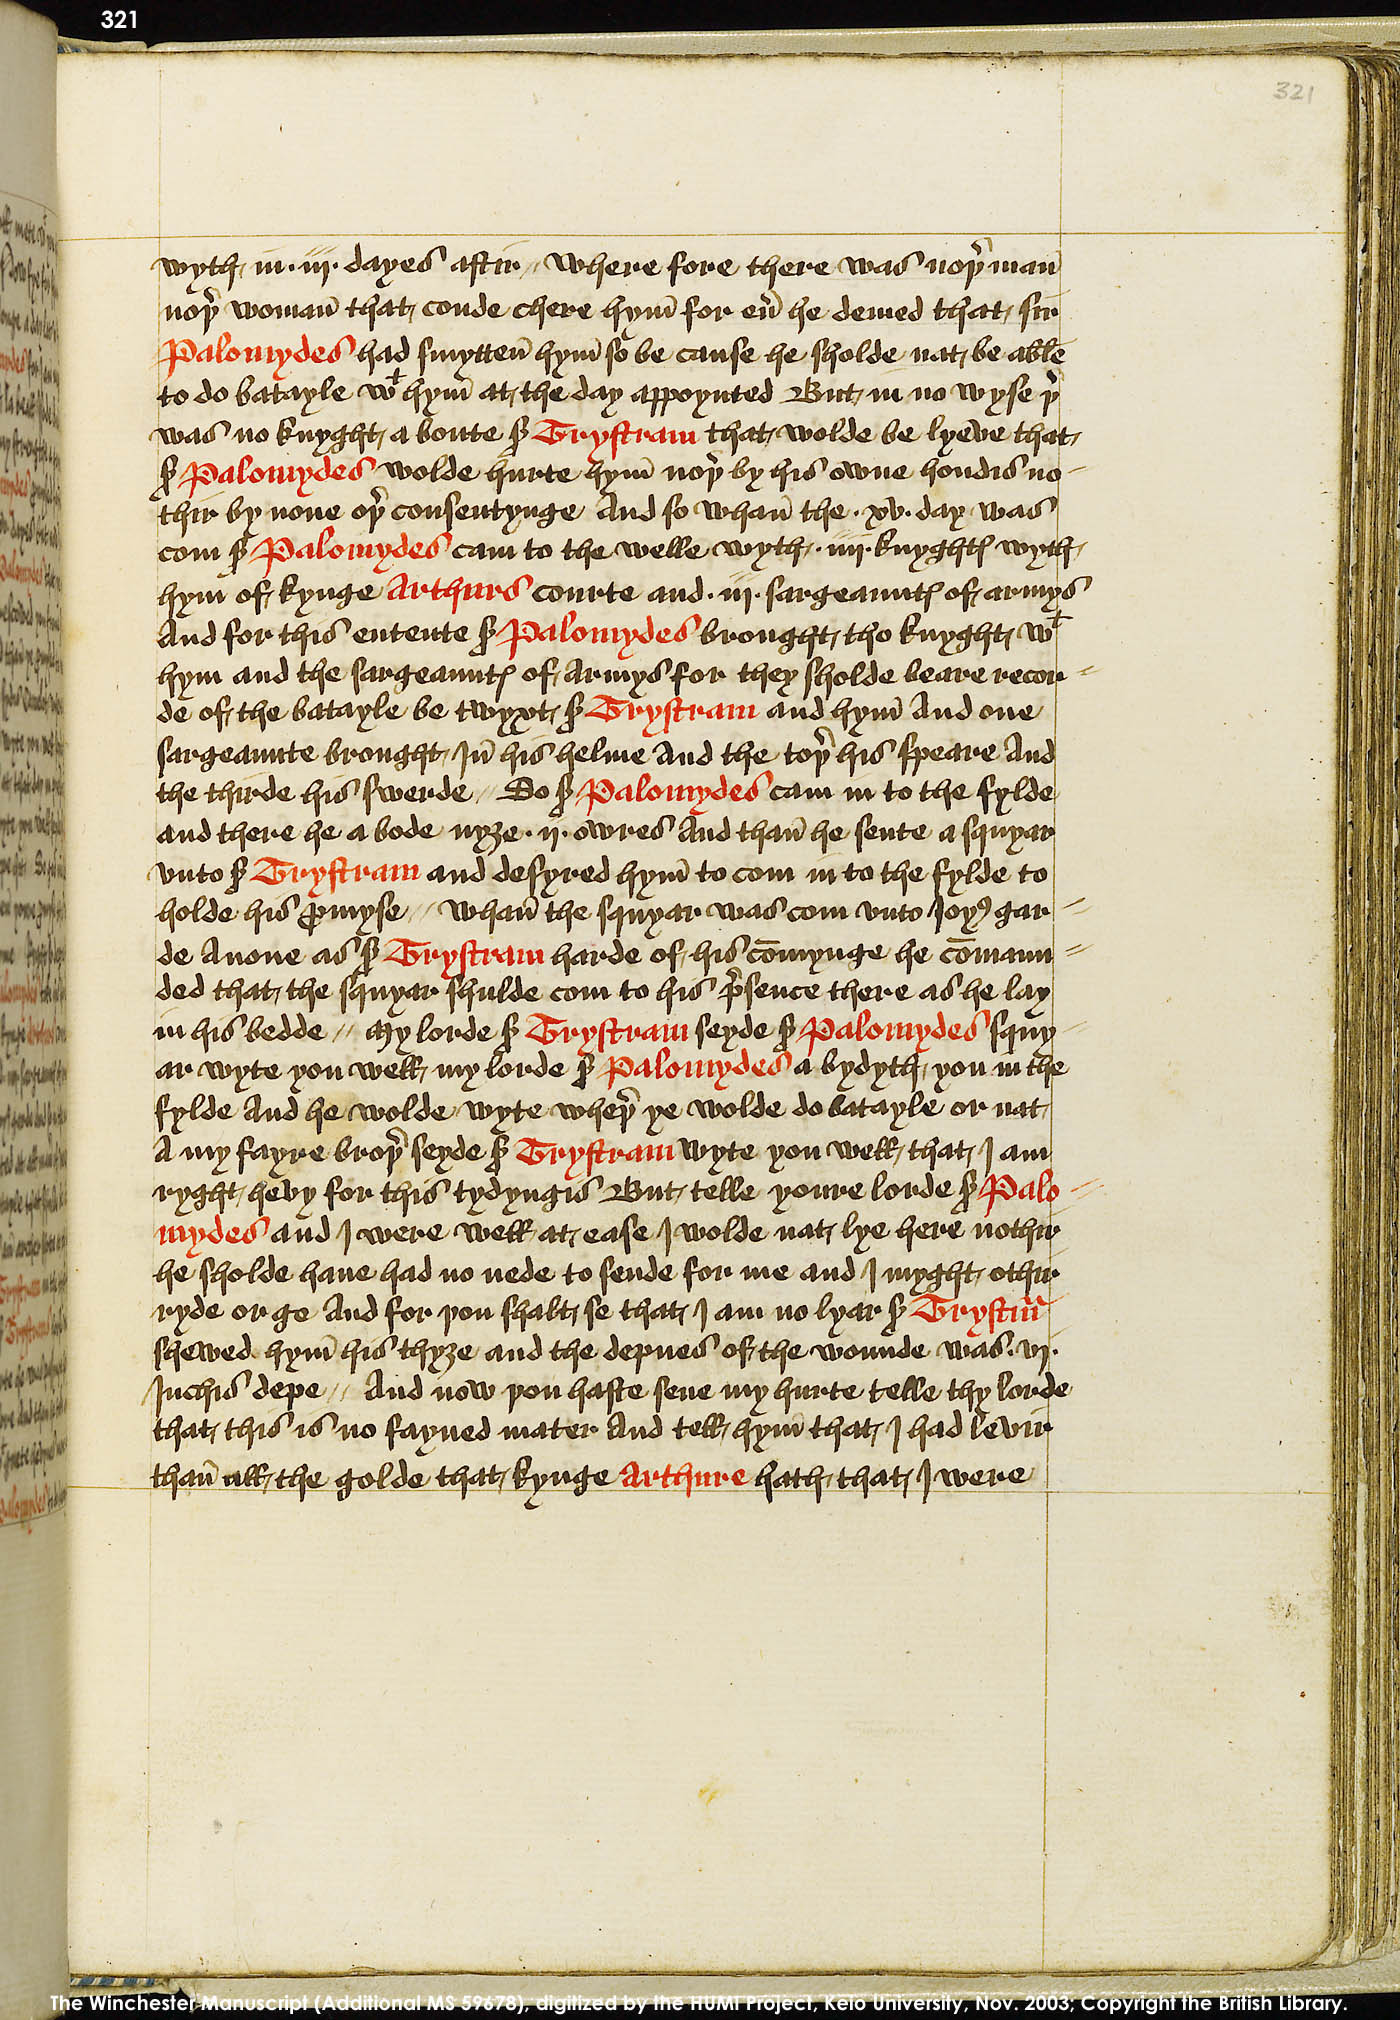 321
321
wyth in .iij. dayes aftir // Where fore there was noþr man̄
noþr woman̄ that coude chere hym̄ for eū he demed that sir
Palomydes had smytten̄ hym̄ so be cause he sholde nat be able
to do batayle wt hym̄ at the day appoynted But in no wyse þr
was no knyght a boute sr Trystram that wolde be lyeve that
sr Palomydes wolde hurte hym̄ noþr by his owne hondis no-
thir by none oþr consentynge And so whan̄ the .xv. day was
com sr Palomydes cam to the welle wyth .iiij. knyghtꝭ wyth
hym of kynge Arthurs courte and .iij. sargeauntꝭ of armys
And for this entente sr Palomydes brought tho knyght wt
hym and the sargeauntꝭ of Armys for they sholde beare recor=
de of the batayle be twyxt sr Trystram and hym̄ And one
sargeaunte brought In̄ his helme And the toþr his speare And
the thirde his swerde // So sr Palomydes cam in to the fylde
and there he a bode nyȝe .ij. owres And than̄ he sente a squyar
vnto sr Trystram and desyred hym̄ to com in to the fylde to
holde his ꝓmyse // Whan̄ the squyar was com vnto Joyꝰ gar=
de Anone as sr Trystram harde of his cōmynge he cōmaun=
ded that the squyar shulde com to his p̄sence there as he lay
in his bedde // My lorde sr Trystram seyde sr Palomydes squy=
ar wyte you well my lorde sr Palomydes a bydyth you in the
fylde And he wolde wyte wheþr ye wolde do batayle or nat
A my fayre broþr seyde sr Trystram wyte you well that I am
ryght hevy for this tydyngis But telle youre lorde sr Palo=
mydes and I were well at ease I wolde nat lye here nothir
he sholde haue had no nede to sende for me and I myght othir
ryde or ge And for you shalt se that I am no lyar sr Trystm̄
schewed hym̄ his thyȝe and the depnes of the wounde was .vj.
Inchis depe // And now you haste sene my hurte telle thy lorde
that this is no fayned mater And tell hym̄ that I had levir
than̄ all the golde that kynge Arthure hath that I were
The Winchester Manuscript (Additional MS 59678), digitized by the HUMI Project, Keio University, Nov. 2003; Copyright the British Library.